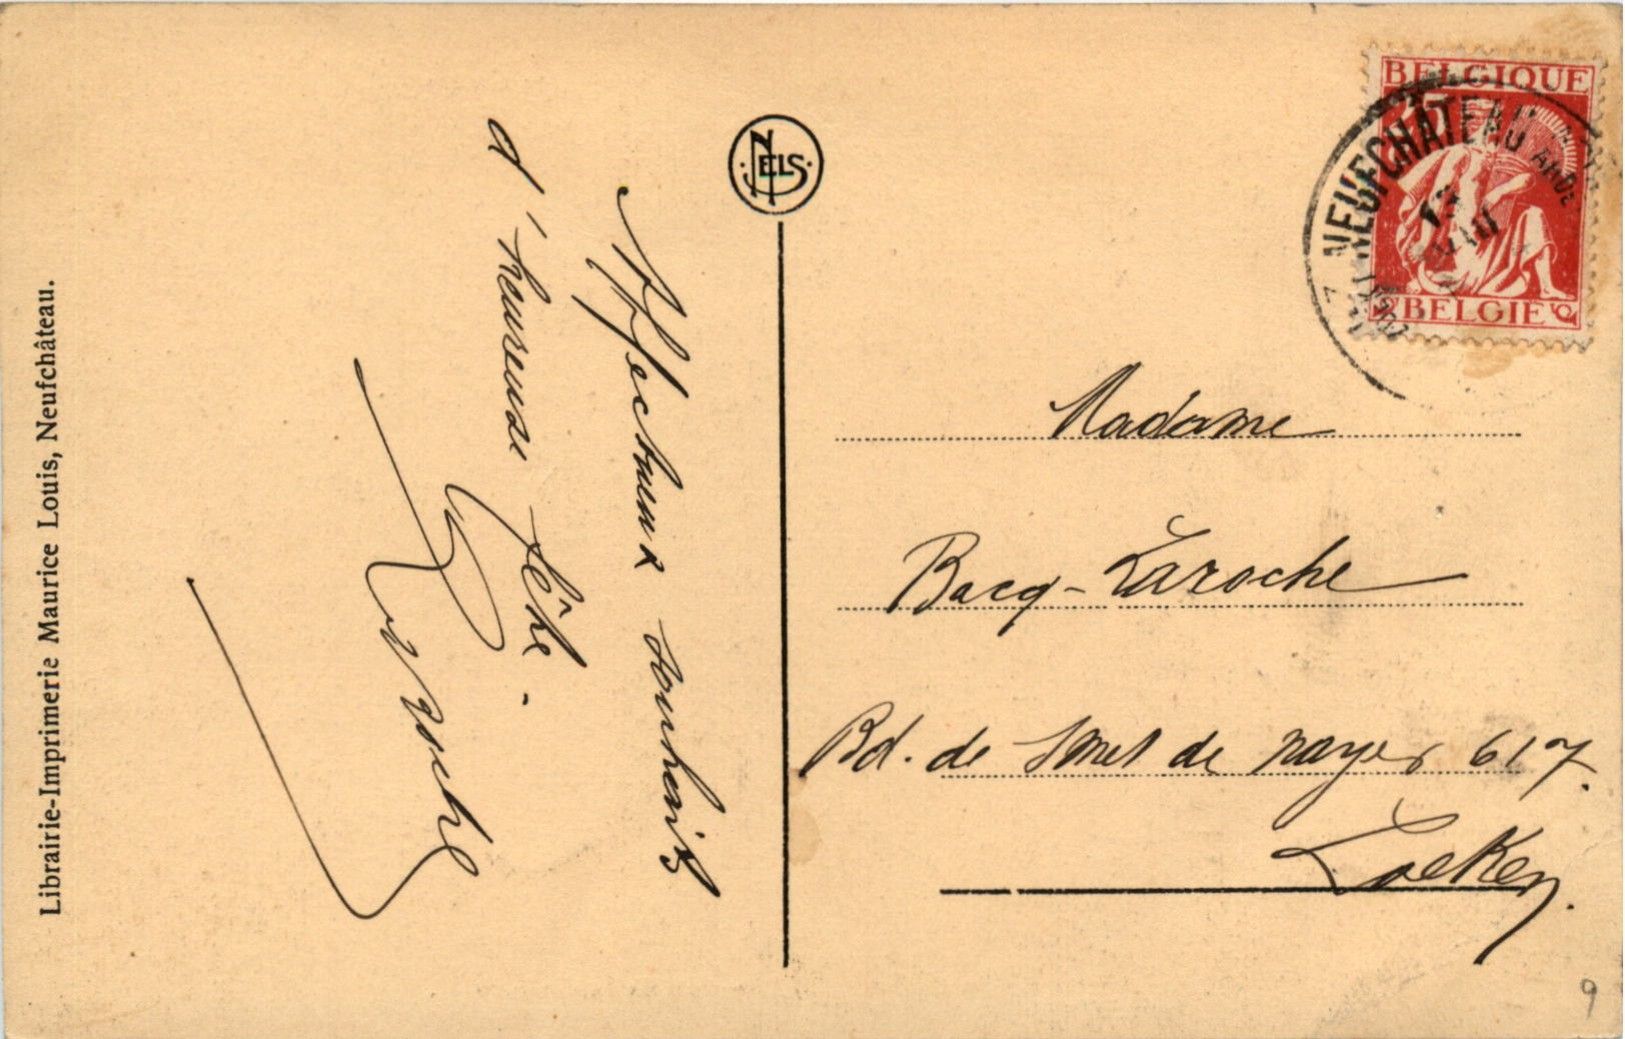 Librairie-Imprimerie Maurice Louis, Neufchâteau.
Affectueux souvenir
d'heureuse fête.
NELS
BELGIQUE
BELGIE
NEUFCHÂTEAU
Madame
Bacq-Laroche
Bd. de Smet de nayer 617.
Laeken.
9